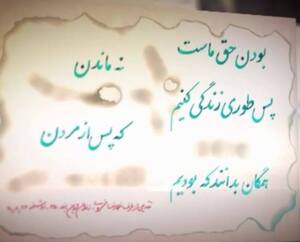 بودن حق ماست
نه ماندن
پس طوری زندگی کنیم
که پس از مردن
همگان بدانند که بودیم